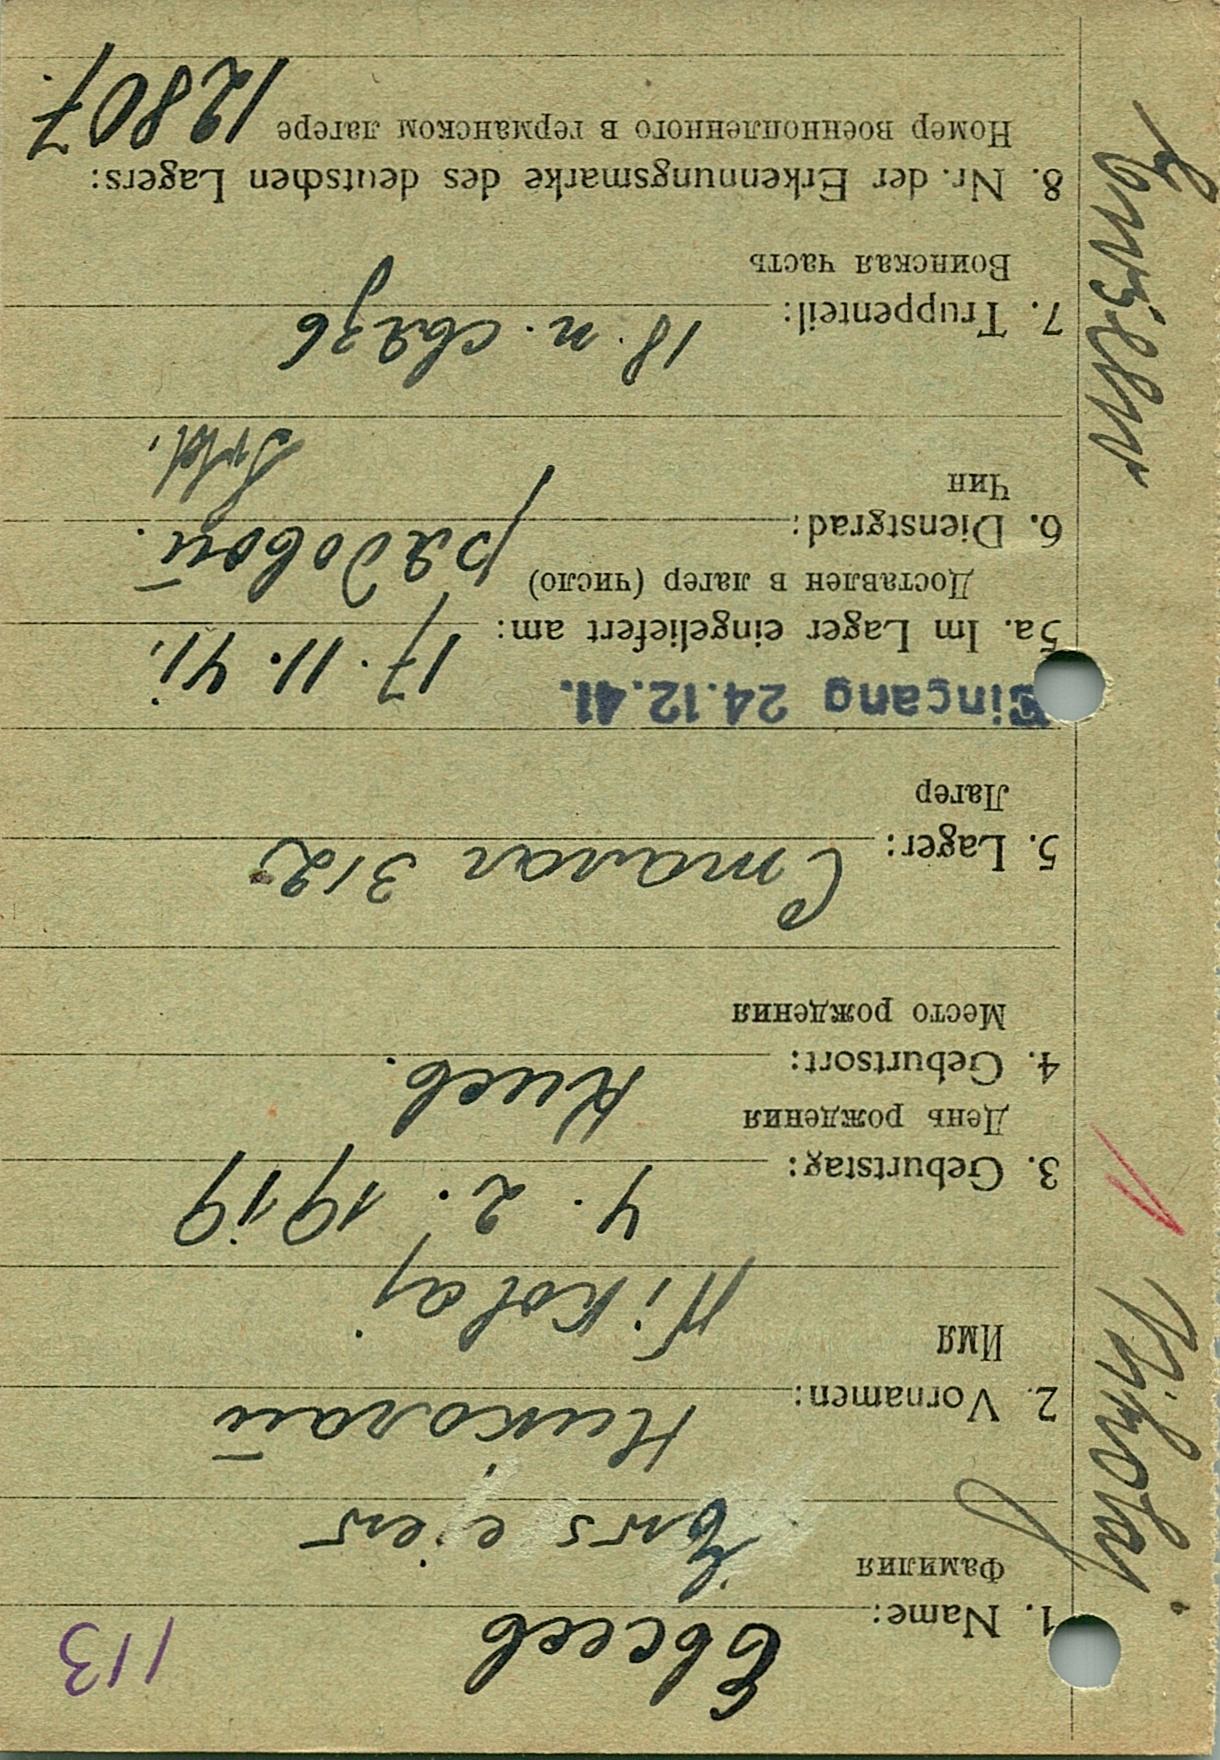 113
1. Name: Евсеев
Фамилия
Ewsejew
2. Vornamen: Николай
Имя
Nikolaj
3. Geburtstag: 4. 2. 1919
День рождения
4. Geburtsort: Киев.
Место рождения
5. Lager: Сталаг 312
Лагер
Eingang 24.12.41.
5a. Im Lager eingeliefert am: 17. 11. 41.
Доставлен в лагер (число)
6. Dienstgrad: рядовой.
Чин
Sold.
7. Truppenteil: 18. п. связь
Воинская часть
8. Nr. der Erkennungsmarke des deutschen Lagers:
Номер военнопленного в германском лагере 12807.
Nikolaj